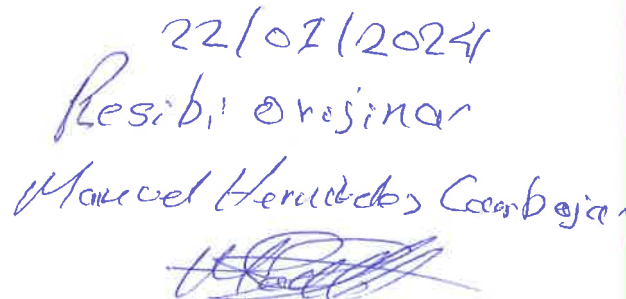 22/01/2024
Resibi orisinar
Manuel Hernandes Carbajar